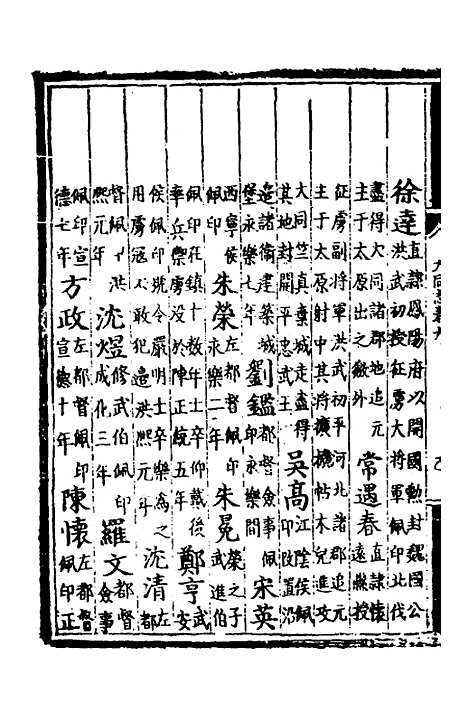 徐達 直隷鳳陽府以開國勳封魏國公 洪武初授征虜大將軍佩印北伐
盡得大同諸郡地追元 主于太原出之徼外 常遇春 直隷懷 遠縣授
征虜副将軍洪武初平河北諸郡追元 主于太原射中其将擴機帖木兒進攻
大同竺真棄城走盡得 其地封開平忠武王 吳高 江陰侯佩 印改置沿
邉諸衛建築城 堡永樂七年 劉鑑 都督僉事佩 印永樂間 宋英
西寧侯 佩印 朱榮 左都督佩印 永樂二年 朱冕 榮之子 武進伯
佩印在鎮十數年士卒仰戴後 率兵禦虜没於陣正統五年 鄭亨 武 安
侯佩印號令嚴明士卒樂為之 用虜寇不敢犯邉洪熙元年 沈清 左 都
督佩印洪 熙元年 沈煜 修武伯佩印 成化三年 羅文 都督 僉事
佩印宣 德七年 方政 左都督佩印 宣德十年 陳懷 左都督 佩印正